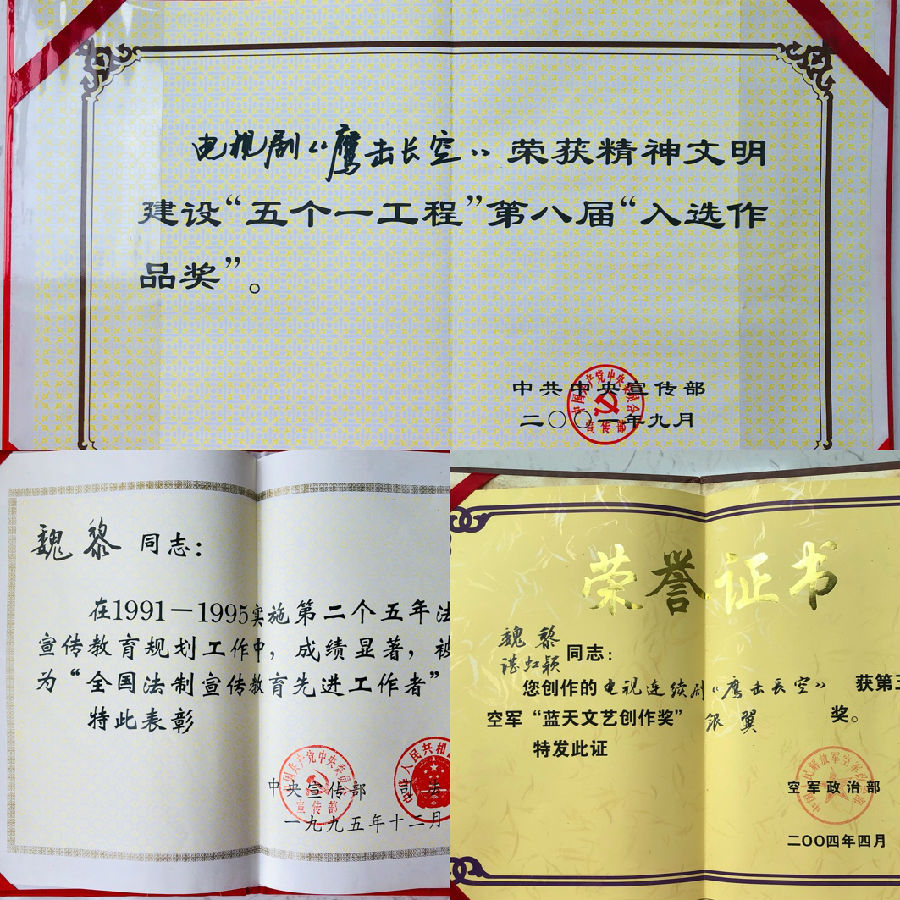 电视剧《鹰击长空》荣获精神文明
建设“五个一工程”第八届“入选作
品奖”。
中共中央宣传部
二〇〇一年九月
魏黎 同志：
在1991－1995实施第二个五年法
宣传教育规划工作中，成绩显著，被
为“全国法制宣传教育先进工作者”
特此表彰
中央宣传部
一九九五年十二月
荣誉证书
魏黎
谌虹颖 同志：
您创作的电视连续剧《鹰击长空》 获第三
空军“蓝天文艺创作奖” 银翼 奖。
特发此证
空军政治部
二〇〇四年四月